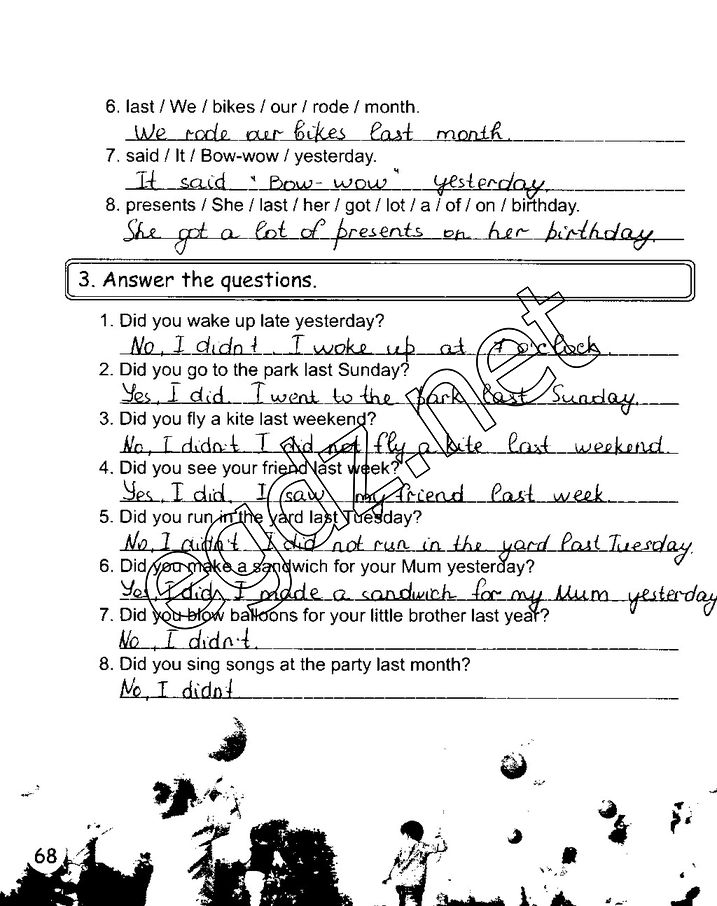 6. last / We / bikes / our / rode / month.
We rode our bikes last month.
7. said / It / Bow-wow / yesterday.
It said "Bow-wow" yesterday.
8. presents / She / last / her / got / lot / a / of / on / birthday.
She got a lot of presents on her birthday.
3. Answer the questions.
1. Did you wake up late yesterday?
No, I didn't. I woke up at 7 o'clock.
2. Did you go to the park last Sunday?
Yes, I did. I went to the park last Sunday.
3. Did you fly a kite last weekend?
No, I didn't I did not fly a kite last weekend.
4. Did you see your friend last week?
Yes, I did. I saw my friend last week.
5. Did you run in the yard last Tuesday?
No, I didn't I did not run in the yard last Tuesday.
6. Did you make a sandwich for your Mum yesterday?
Yes, I did, I made a sandwich for my Mum yesterday
7. Did you blow balloons for your little brother last year?
No, I didn't.
8. Did you sing songs at the party last month?
No, I didn't
egdz.net
68